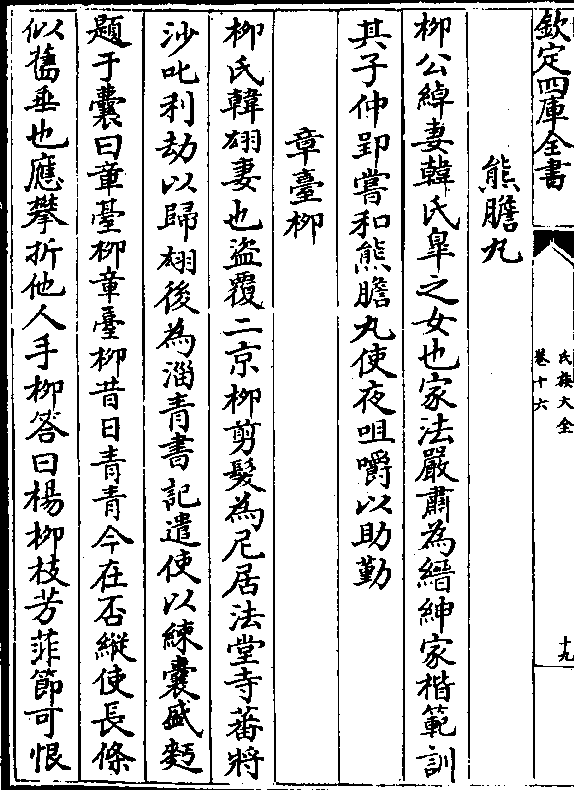 欽定四庫全書
氏族大全
卷十六
十九
熊膽丸
柳公綽妻韓氏臯之女也家法嚴肅為縉紳家楷範訓
其子仲郢嘗和熊膽丸使夜咀嚼以助勤
章臺柳
柳氏韓翃妻也盜覆二京柳剪髮為尼居法堂寺蕃將
沙叱利劫以歸翃後為淄青書記遣使以練囊盛麪
題于囊曰章臺柳章臺柳昔日青青今在否縱使長條
似舊垂也應攀折他人手柳答曰楊柳枝芳菲節可恨